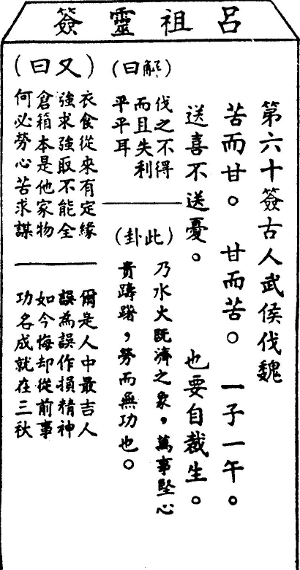 呂祖靈簽
第六十簽古人武侯伐魏
苦而甘。 甘而苦。 一子一午。
送喜不送憂。 也要自裁生。
(解曰)
伐之不得
而且失利
平平耳
(此卦)
乃水火既濟之象，萬事堅心
貴躊躇，勞而無功也。
(又曰)
衣食從來有定緣
強求強取不能全
倉箱本是他家物
何必勞心苦求謀
爾是人中最吉人
誤為誤作損精神
如今悔却從前事
功名成就在三秋